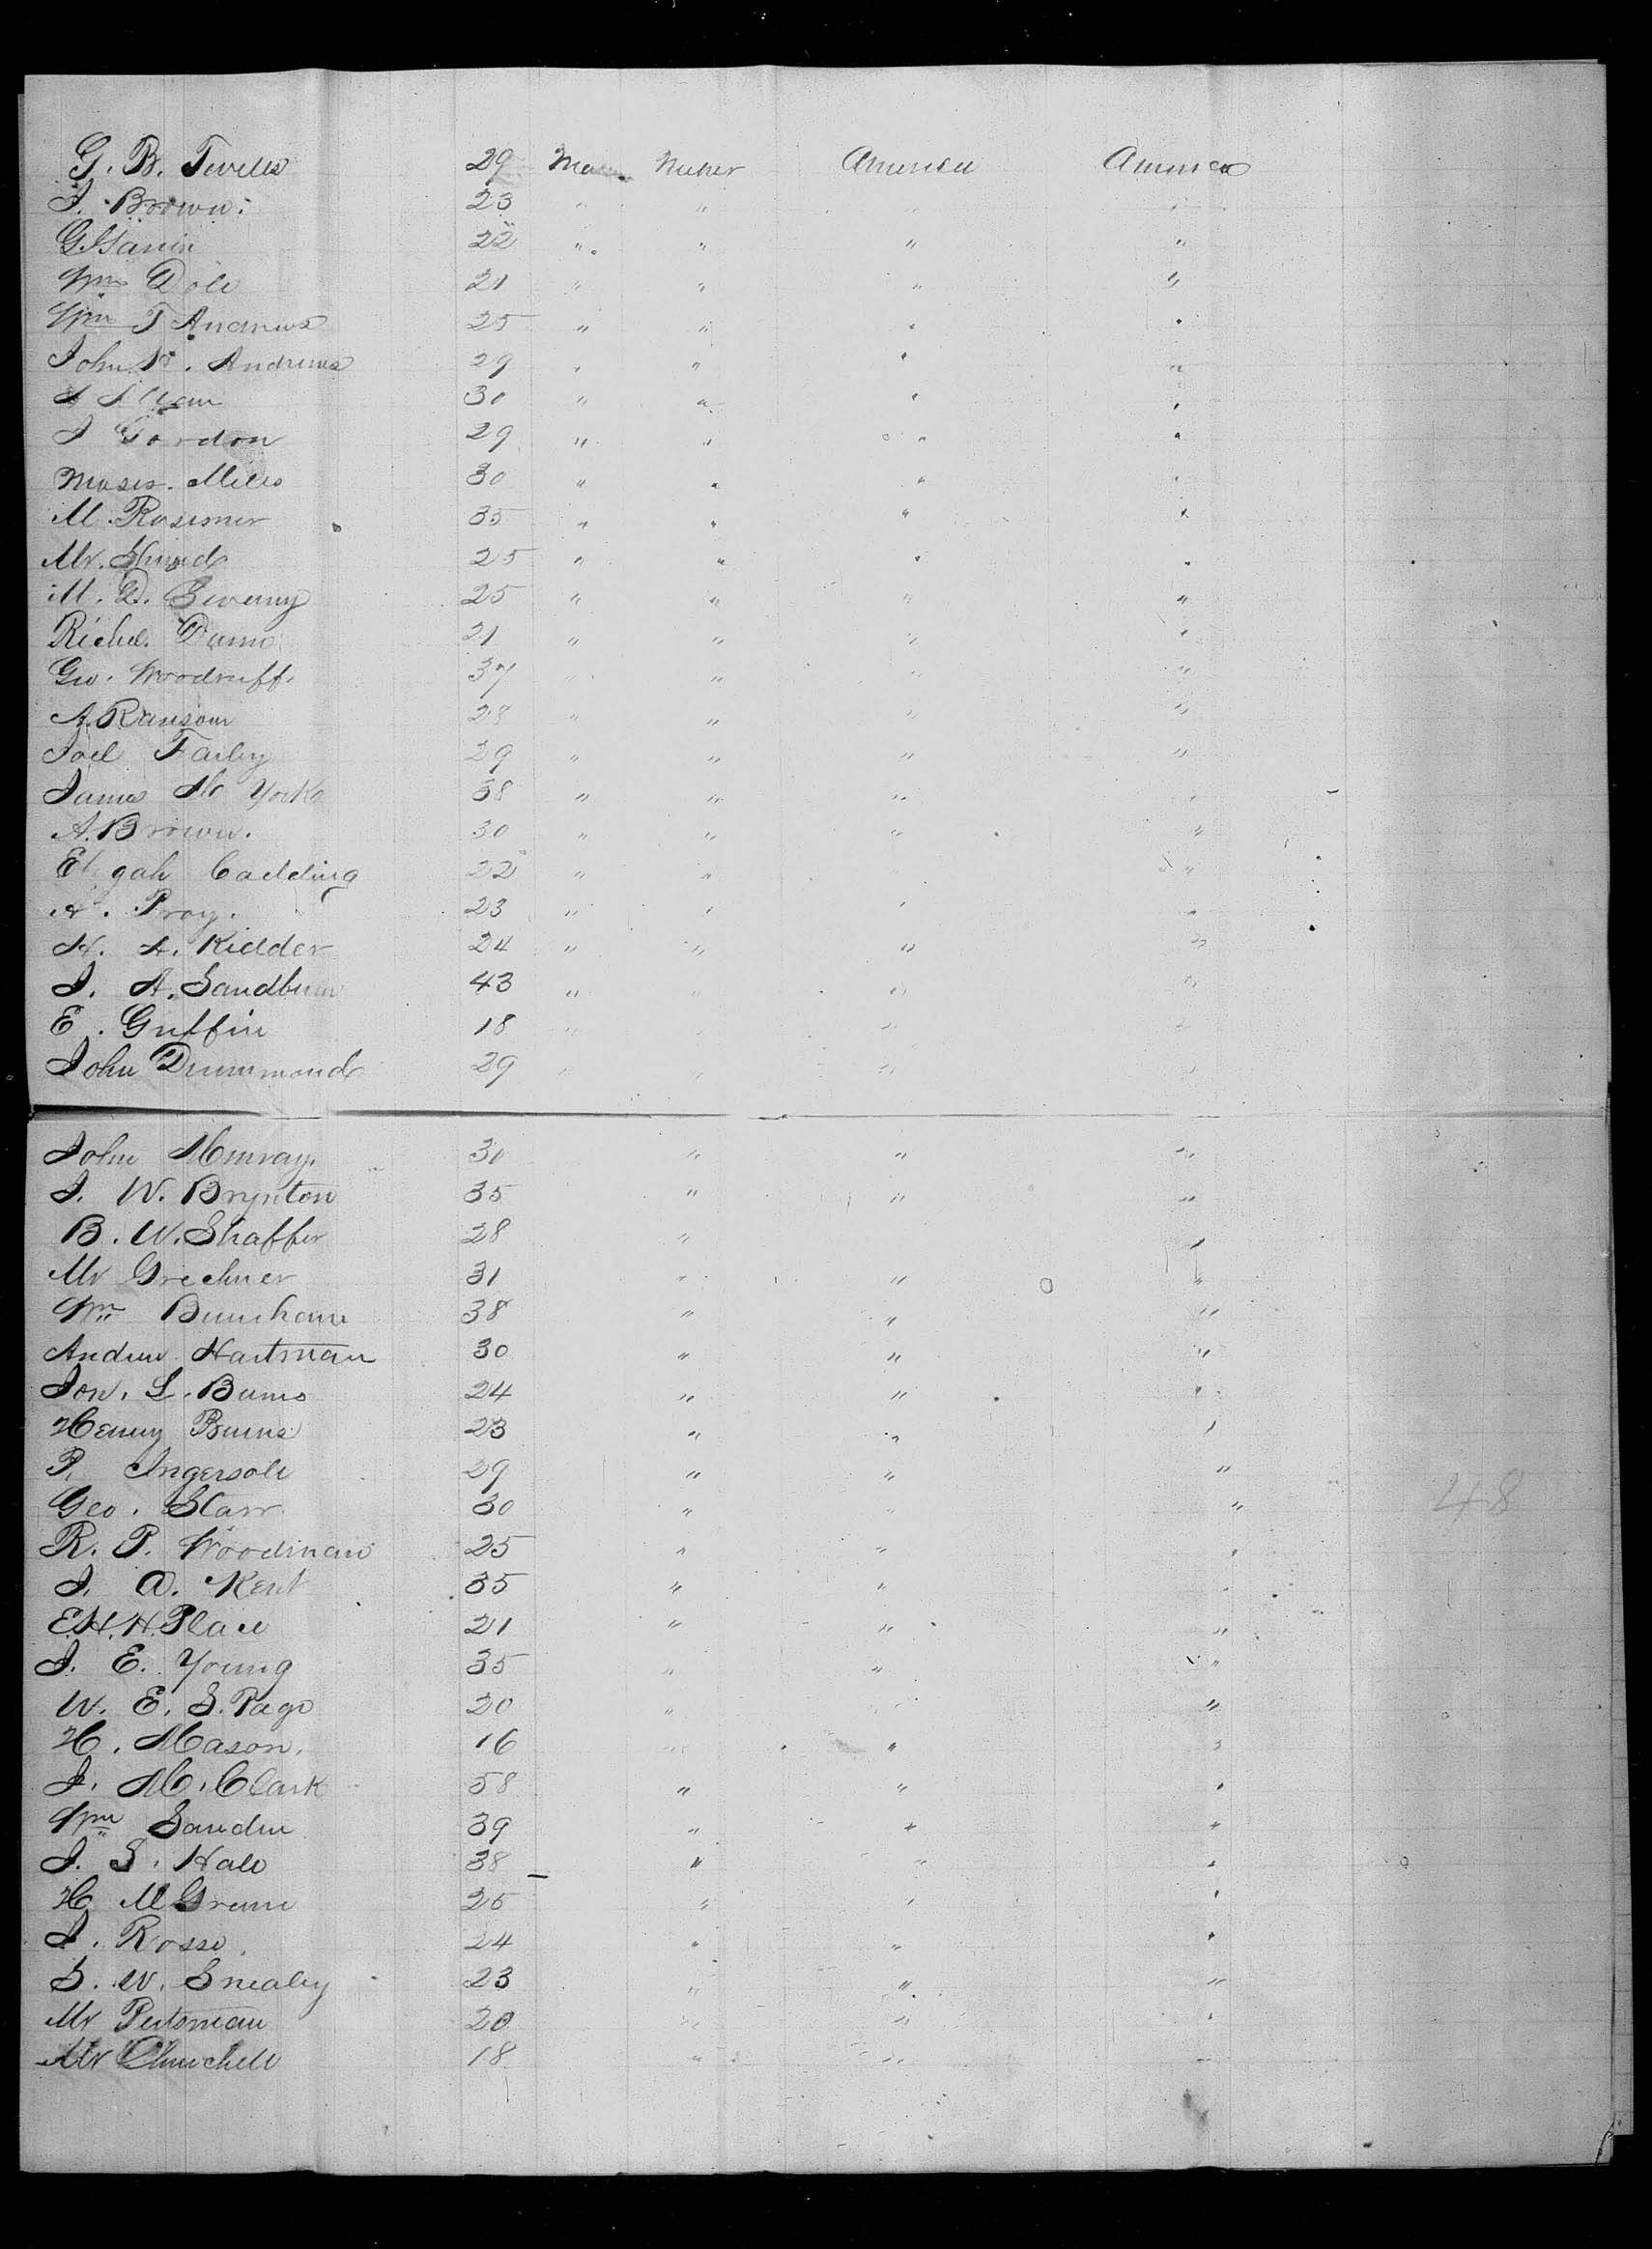 G. B. Tevells 29 Male Miner America America
J. Brown. 23 " " " "
G. Hanin 22 " " " "
Wm Dole 21 " " " "
Wm T Andrews 25 " " " "
John . Andrews 29 " " " "
30 " " " "
J Gordon 29 " " " "
Moses. Mills 30 " " " "
M. Rosimer 35 " " " "
Mr. 25 " " " "
M. D. Sweeny 25 " " " "
Richd. 21 " " " "
Geo. Woodruff. 37 " " " "
A. Ransom 28 " " " "
Joel Farley 29 " " " "
James M York 38 " " " "
A. Brown. 30 " " " "
Eligah Cadding 22 " " "
A. Pray. 23 " " " "
H. A. Kidder 24 " " " "
J. A. Sandburn 43 " " " "
E. Griffin 18 " " " "
John Drummond 29 " " " "
John Murray. 30 " " "
J. W. Brynton 35 " " "
B. W. Shaffer 28 " "
Mr Grechner 31 " " "
Wm Burnham 38 " " "
Andrew Hartman 30 " " "
Jon. L. Burns 24 " " "
Henry Burns 23 " " "
P. Ingersole 29 " " "
Geo. Starr 30 " " "
R. P. Woodman 25 " " "
J. A. Kent 35 " " "
E. H. H. Place 21 " " "
J. E. Young 35 " " "
W. E. S. Page 20 " " "
H. Mason. 16 " " "
J. M. Clark 58 " " "
Wm 39 " " "
J. S. Hale 38 " " "
H M 25 " " "
J. Rosse. 24 " " "
S. W. Snealey 23 " " "
Mr 20 " " "
Mr Churchell 18 " " "
48